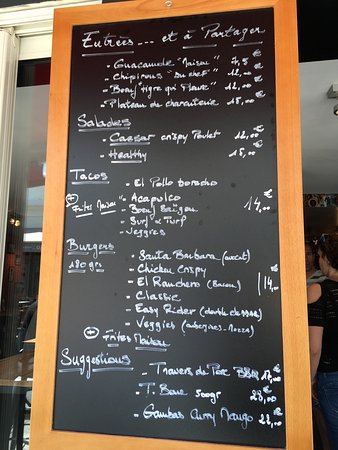 Entrées ... et à Partager
- Guacamole "Maison" 7,5 €
- Chipirons "du chef" 12,00 €
- Boeuf "tigre qui pleure" 12,00 €
- Plateau de charcuterie 15,00 €
Salades
- Caesar crispy Poulet 12,00 €
- Healthy 15,00 €
Tacos
- El Pollo borracho
+ Frites Maison
- Acapulco
- Boeuf Saïgon 14,00 €
- Surf & Turf
- Veggies
Burgers
180 grs
- Santa Barbara (avocat)
- Chicken Crispy
- El Ranchero (Bacon) 14,00 €
- Classic
- Easy Rider (double)
- Veggies (aubergines-Mozza)
+ Frites Maison
Suggestions
- Travers de Porc BBQ 17,00 €
- T. Bone 500gr 23,00 €
- Gambas Curry Mango 22,00 €